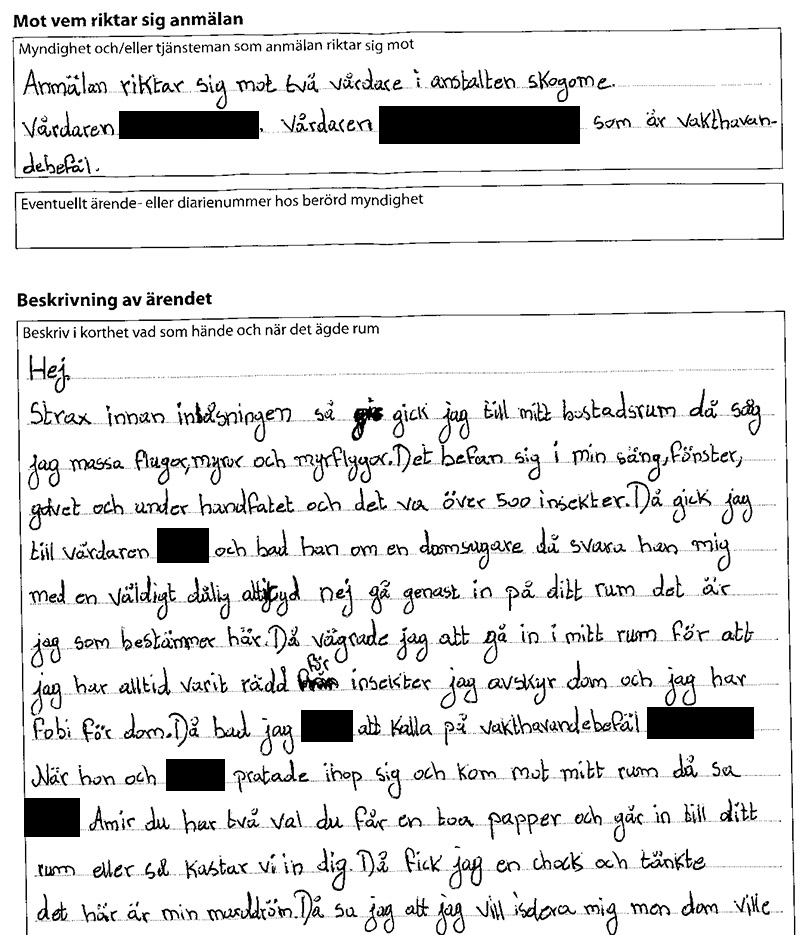 Mot vem riktar sig anmälan
Myndighet och/eller tjänsteman som anmälan riktar sig mot
Anmälan riktar sig mot två vårdare i anstalten skogome.
Vårdaren . Vårdaren som är vakthavan-
debefäl.
Eventuellt ärende- eller diarienummer hos berörd myndighet
Beskrivning av ärendet
Beskriv i korthet vad som hände och när det ägde rum
Hej.
Strax innan inlåsningen så gick jag till mitt bostadsrum då såg
jag massa flugor, myror och myrflygor. Det befan sig i min säng, fönster,
golvet och under handfatet och det va över 500 insekter. Då gick jag
till vårdaren och bad han om en domsugare då svara han mig
med en väldigt dålig attityd nej gå genast in på ditt rum det är
jag som bestämmer här. Då vägrade jag att gå in i mitt rum för att
jag har alltid varit rädd för insekter jag avskyr dom och jag har
fobi för dom. Då bad jag att kalla på vakthavandebefäl
När hon och pratade ihop sig och kom mot mitt rum då sa
Amir du har två val du får en toa papper och går in till ditt
rum eller så kastar vi in dig. Då fick jag en chock och tänkte
det här är min mardröm. Då sa jag att jag vill isolera mig men dom ville